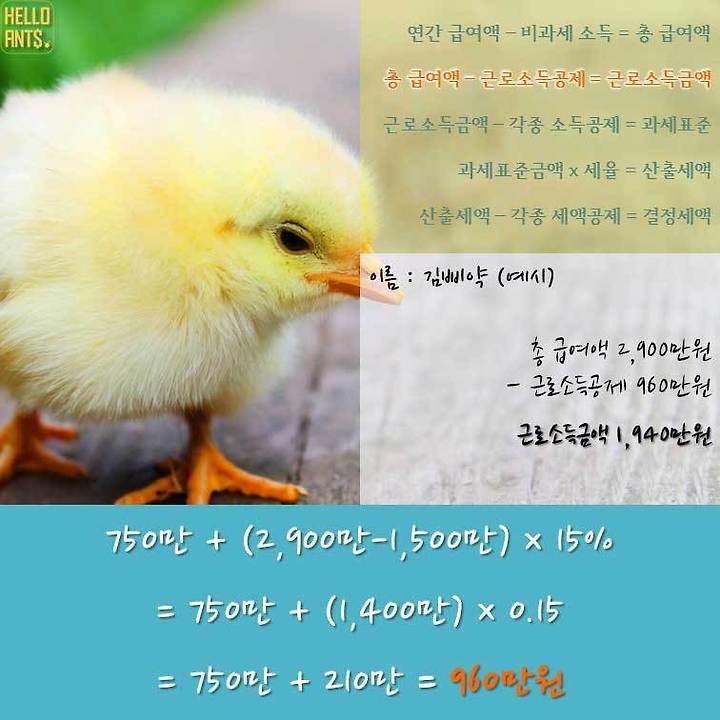 HELLO
ANT$.
연간 급여액 – 비과세 소득 = 총 급여액
총 급여액 – 근로소득공제 = 근로소득금액
근로소득금액 – 각종 소득공제 = 과세표준
과세표준금액 x 세율 = 산출세액
산출세액 – 각종 세액공제 = 결정세액
이름 : 김삐약 (예시)
총 급여액 2,900만원
- 근로소득공제 960만원
근로소득금액 1,940만원
750만 + (2,900만-1,500만) x 15%
= 750만 + (1,400만) x 0.15
= 750만 + 210만 = 960만원